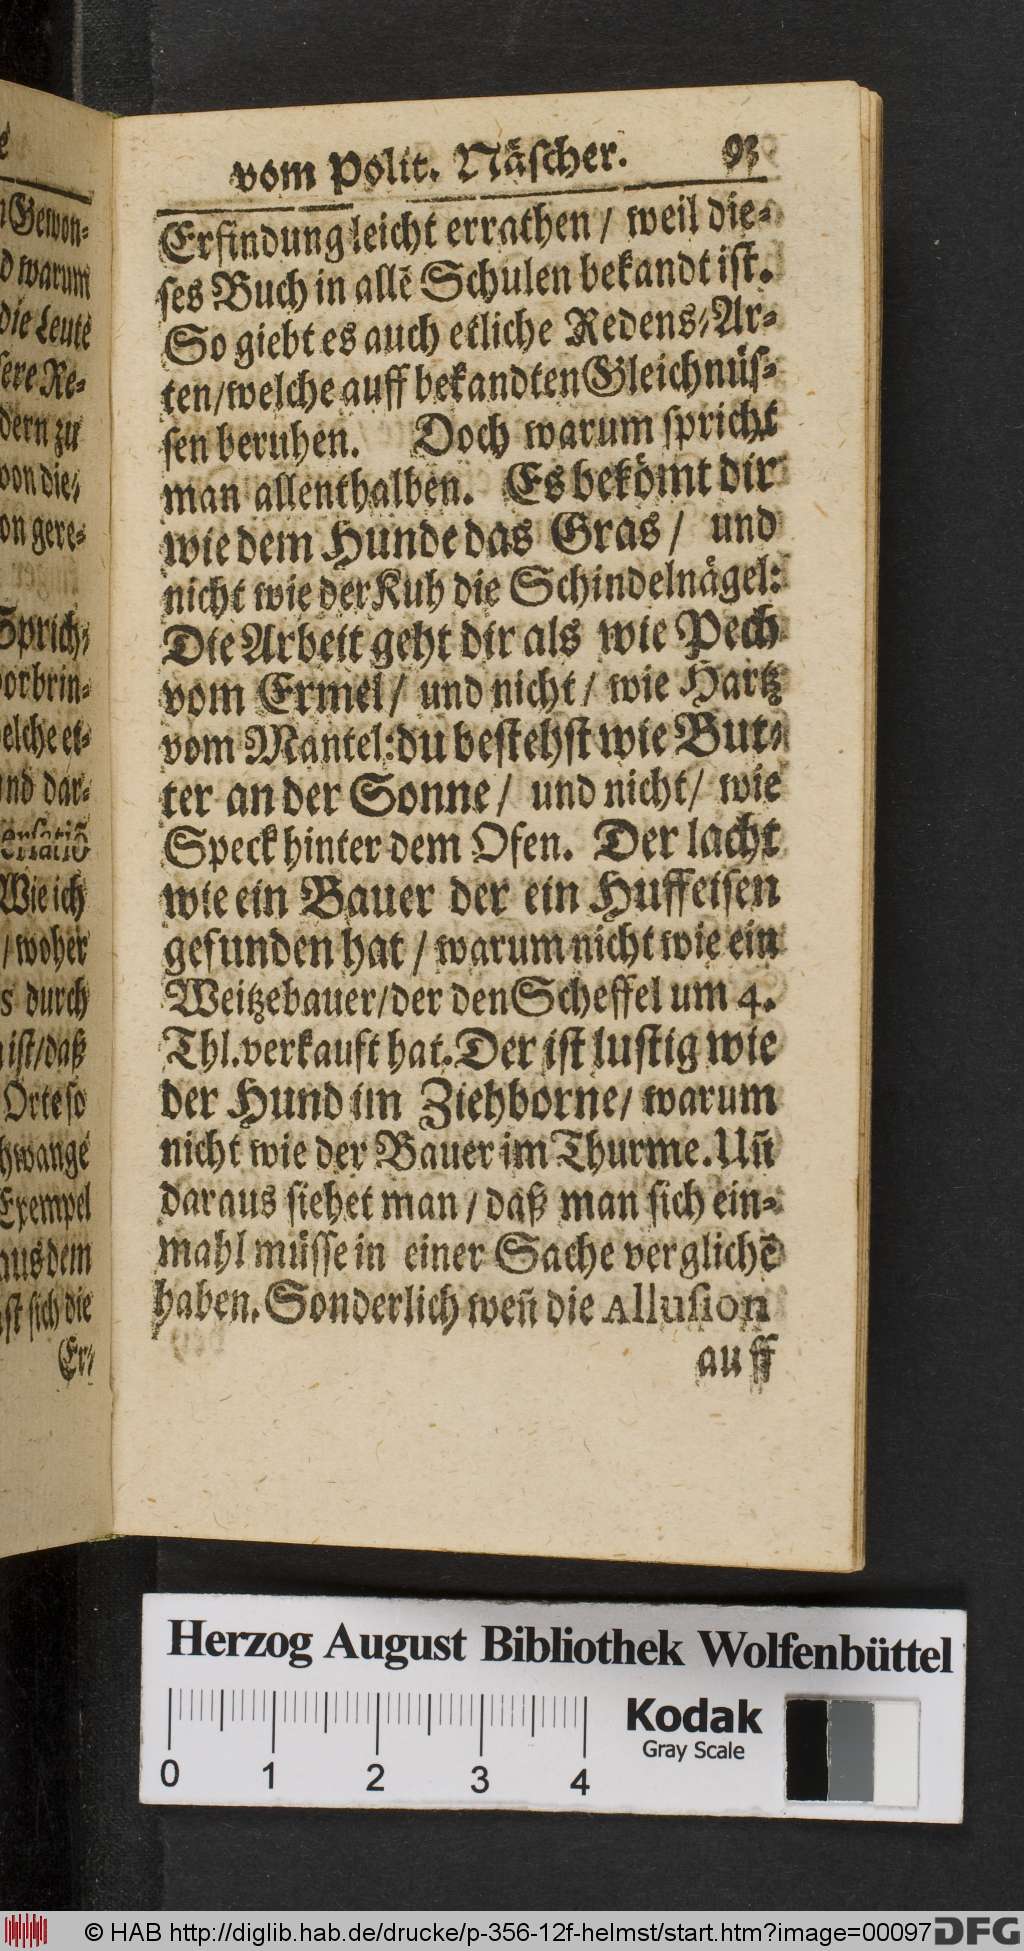 vom Polit. Näscher. 93
Erfindung leicht errathen / weil die-
ses Buch in allē Schulen bekandt ist.
So giebt es auch etliche Redens-Ar-
ten/welche auff bekandten Gleichnüs-
sen beruhen. Doch warum spricht
man allenthalben. Es bekömt dir
wie dem Hunde das Gras / und
nicht wie der Kuh die Schindelnägel:
Die Arbeit geht dir als wie Pech
vom Ermel / und nicht / wie Hartz
vom Mantel: du bestehst wie But-
ter an der Sonne / und nicht / wie
Speck hinter dem Ofen. Der lacht
wie ein Bauer der ein Huffeisen
gefunden hat / warum nicht wie ein
Weitzebauer/der den Scheffel um 4.
Thl. verkauft hat. Der ist lustig wie
der Hund im Ziehborne / warum
nicht wie der Bauer im Thurme. Uñ
daraus siehet man / daß man sich ein-
mahl müsse in einer Sache verglichē
haben. Sonderlich weñ die Allusion
auff
Gewon-
d warum
die Leute
sere Re-
dern zu
von die-
on gere-
Sprich-
vorbrin-
elche et-
und dar-
Wie ich
/ woher
s durch
ist/daß
Orte so
hwange
Exempel
aus dem
st sich die
Er-
Herzog August Bibliothek Wolfenbüttel
0 1 2 3 4
Kodak
Gray Scale
© HAB http://diglib.hab.de/drucke/p-356-12f-helmst/start.htm?image=00097
DFG